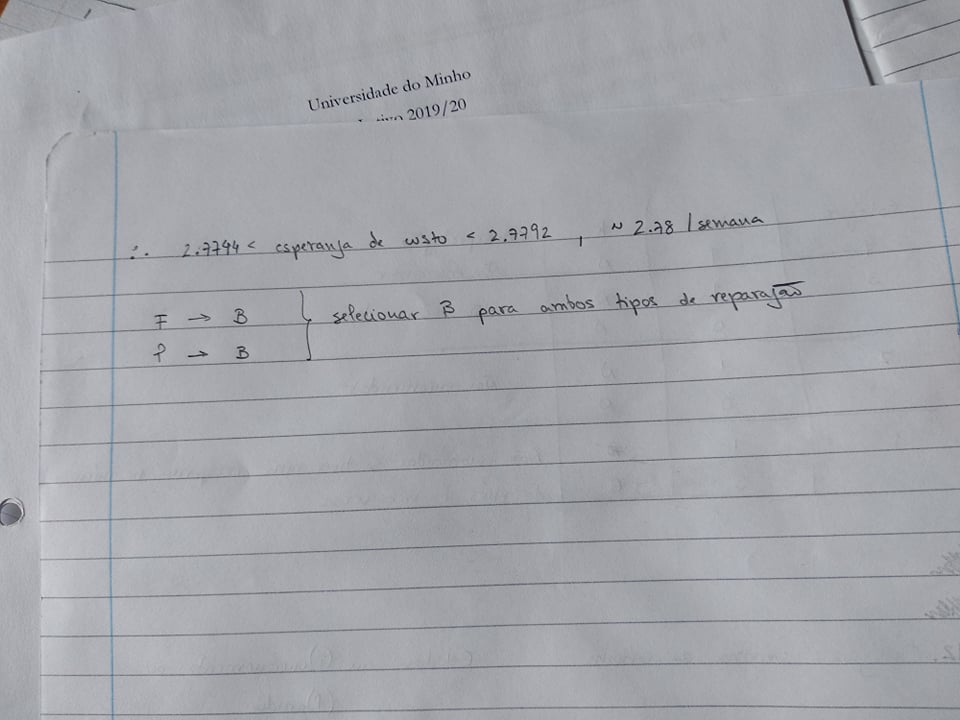 Universidade do Minho
2019/20
∴ 2.7744 < esperança de custo < 2.7792 , ~ 2.78 / semana
F → B } selecionar B para ambos tipos de reparação
P → B